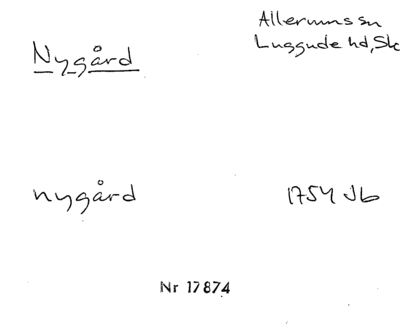 Nygård
Allerums sn
Luggude hd, Sk
nygård
1754 Jb
Nr 17874